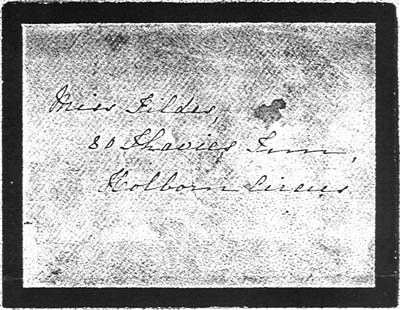 Miss Fildes,
80 Thavies Inn,
Holborn Circus